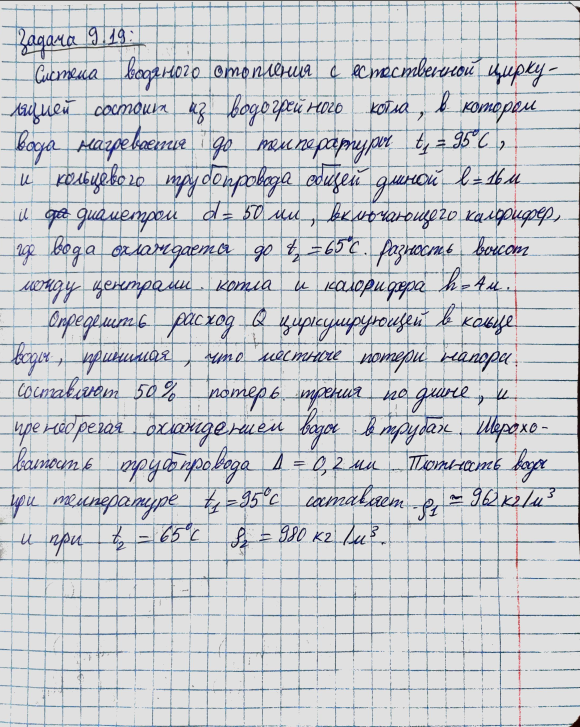 Задача 9.19:
Система водяного отопления с естественной цирку-
ляцией состоит из водогрейного котла, в котором
вода нагревается до температуры t₁ = 95°C,
и кольцевого трубопровода общей длиной l = 16 м
и диаметром d = 50 мм, включающего калорифер,
где вода охлаждается до t₂ = 65°C. Разность высот
между центрами котла и калорифера h = 4 м.
Определить расход Q циркулирующей в кольце
воды, принимая, что местные потери напора
составляют 50% потерь трения по длине, и
пренебрегая охлаждением воды в трубах. Шерохо-
ватость трубопровода Δ = 0,2 мм. Плотность воды
при температуре t₁ = 95°C составляет ρ₁ = 962 кг/м³
и при t₂ = 65°C ρ₂ = 980 кг/м³.